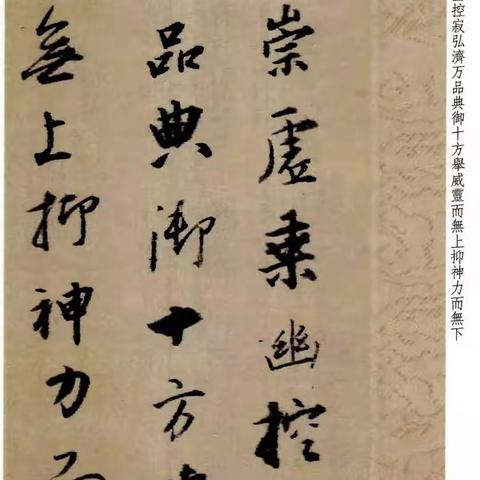 控寂弘濟万品典御十方舉威靈而無上抑神力而無下
崇虛乗幽控
品典御十方
無上抑神力而